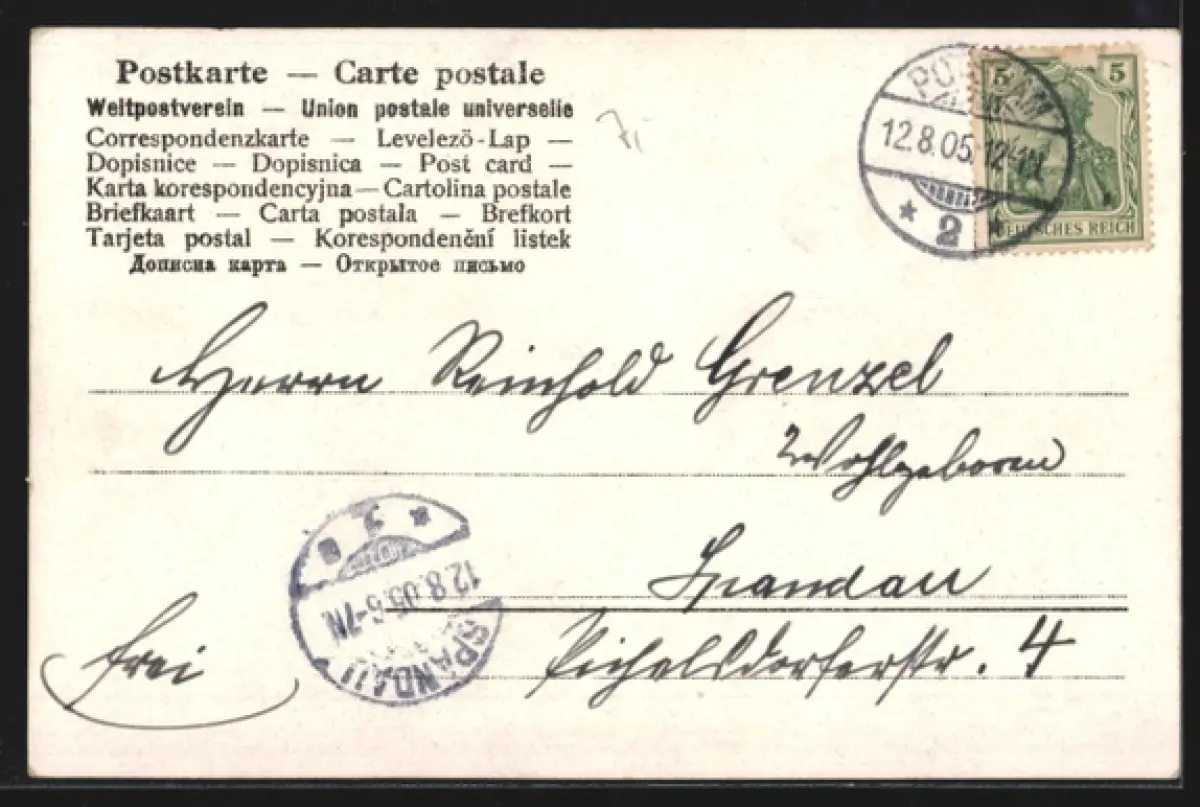 Postkarte — Carte postale
Weltpostverein — Union postale universelle
Correspondenzkarte — Levelező-Lap —
Dopisnice — Dopisnica — Post card —
Karta korespondencyjna — Cartolina postale
Briefkaart — Carta postala — Brefkort
Tarjeta postal — Korespondenční listek
Дописна карта — Открытое письмо
POTSDAM
12.8.05. 12-1N
* 2 *
5 5
DEUTSCHES REICH
Herrn Reinhold Grenzel
Wohlgeboren
Spandau
Pichelsdorferstr. 4
frei
SPANDAU
12.8.05. 6-7N